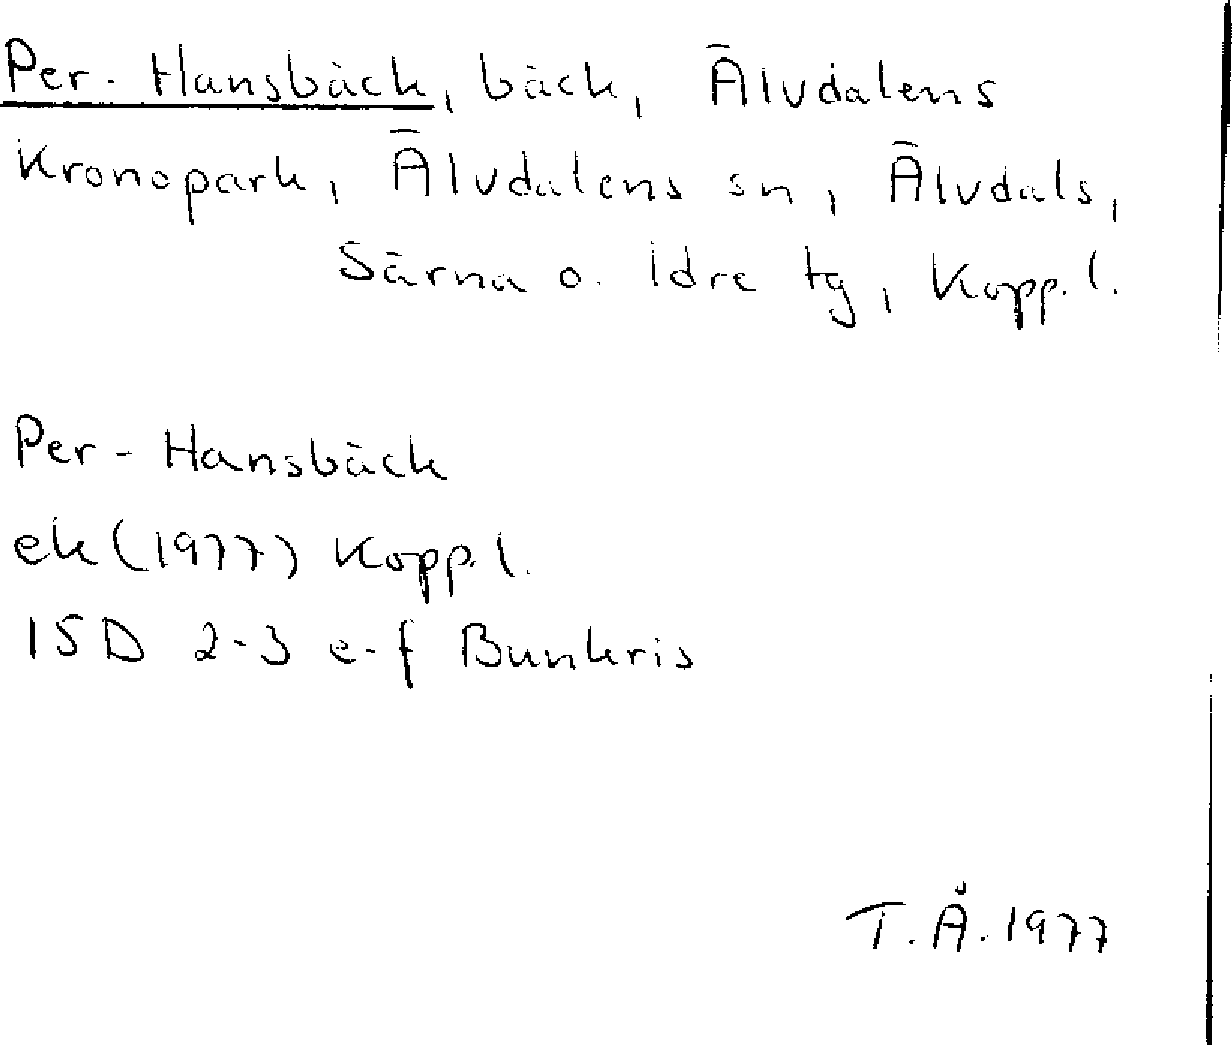 Per-Hansbäck, bäck, Älvdalens
Kronopark, Älvdalens sn, Älvdals,
Särna o. Idre tg, Kopp. l.
Per-Hansbäck
ek (1977) Kopp. l.
15D 2-3 e-f Bunkris
T. Å. 1977